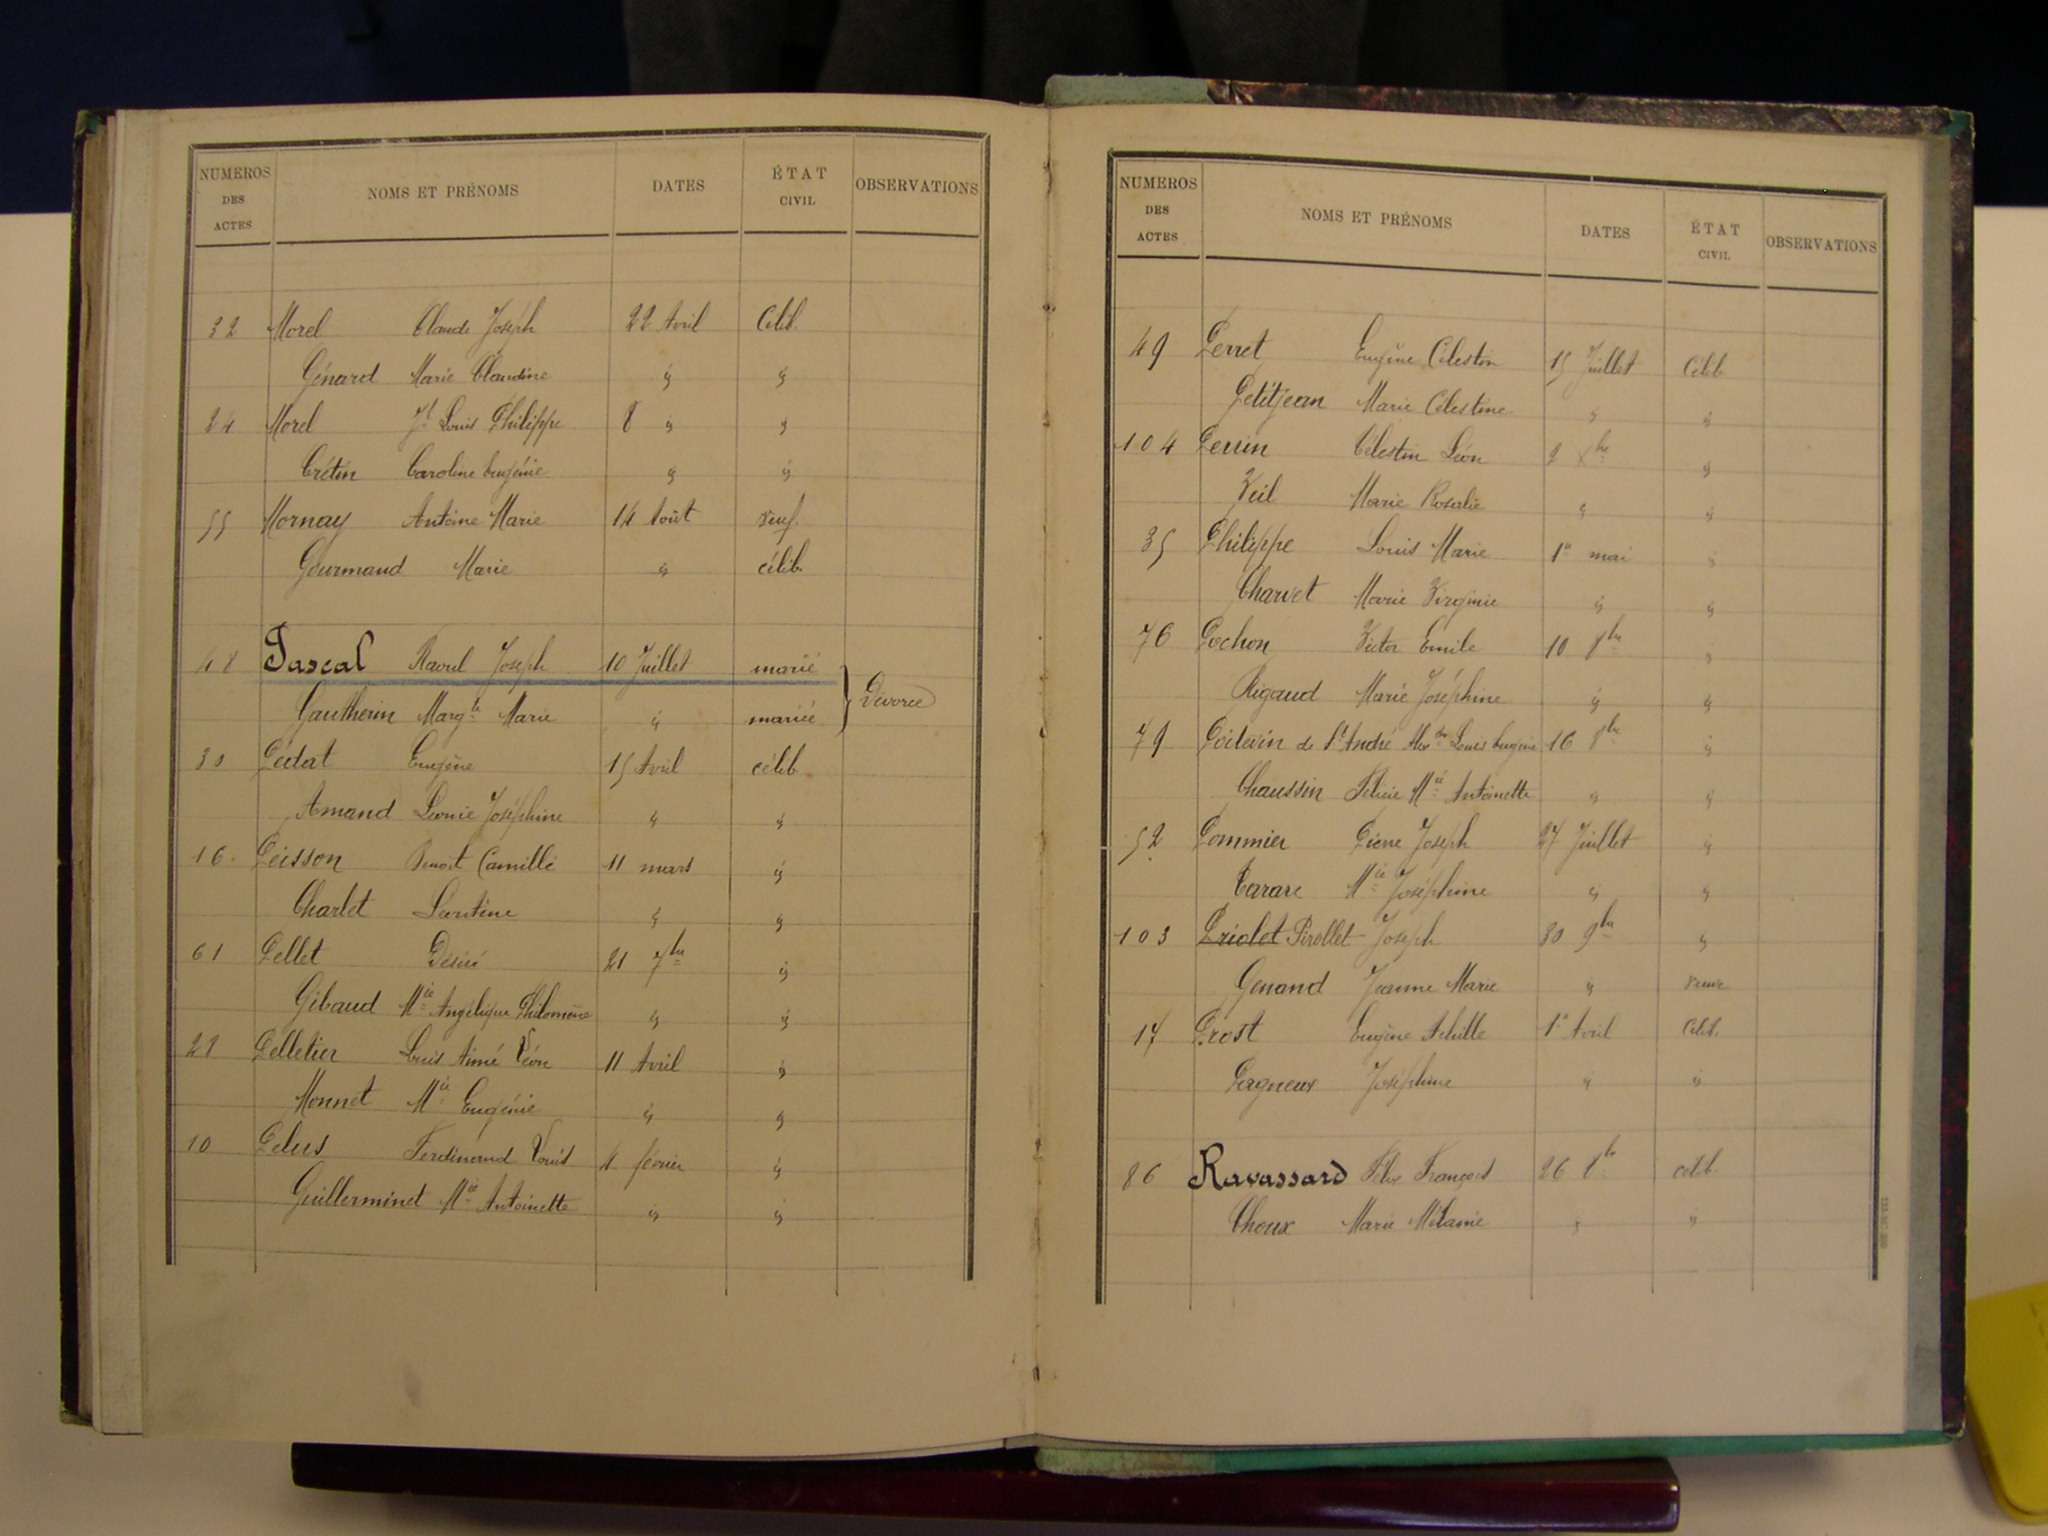 NUMEROS DES ACTES NOMS ET PRÉNOMS DATES ÉTAT CIVIL OBSERVATIONS
32 Morel Claude Joseph 22 Avril Célib.
Génard Marie Claudine " "
24 Morel Jh Louis Philippe 8 " "
Crétin Caroline Eugénie " "
55 Mornay Antoine Marie 14 Août veuf.
Gourmand Marie " célib.
48 Pascal Raoul Joseph 10 Juillet marié
Gautherin Margte Marie " mariée } Divorce
30 Pédat Eugène 15 Avril célib.
Amand Léonie Joséphine " "
16 Peisson Benoit Camille 11 mars "
Charlet Léontine " "
61 Pellet Désiré 21 7bre "
Gibaud Mie Angélique Philomène " "
28 Pelletier Louis Aimé Léon 11 Avril "
Monnet Mie Eugénie " "
10 Pelus Ferdinand Louis 4 février "
Guillerminet Mie Antoinette " "
NUMEROS DES ACTES NOMS ET PRÉNOMS DATES ÉTAT CIVIL OBSERVATIONS
49 Perret Eugène Célestin 15 Juillet Célib.
Petitjean Marie Célestine " "
104 Perrin Célestin Léon 2 Xbre "
Veil Marie Rosalie " "
35 Philippe Louis Marie 1er mai "
Charvet Marie Virginie " "
76 Pochon Victor Emile 10 8bre "
Rigaud Marie Joséphine " "
79 Poitevin de St André Alexdre Louis Eugène 16 8bre "
Chaussin Félicie Mie Antoinette " "
52 Pommier Pierre Joseph 27 Juillet "
Carare Mie Joséphine " "
103 Priolet Pirollet Joseph 30 9bre "
Genand Jeanne Marie " veuve
17 Prost Eugène Achille 1er Avril Célib.
Pagneux Joséphine " "
86 Ravassard Félix François 26 8bre célib.
Choux Marie Mélanie " "